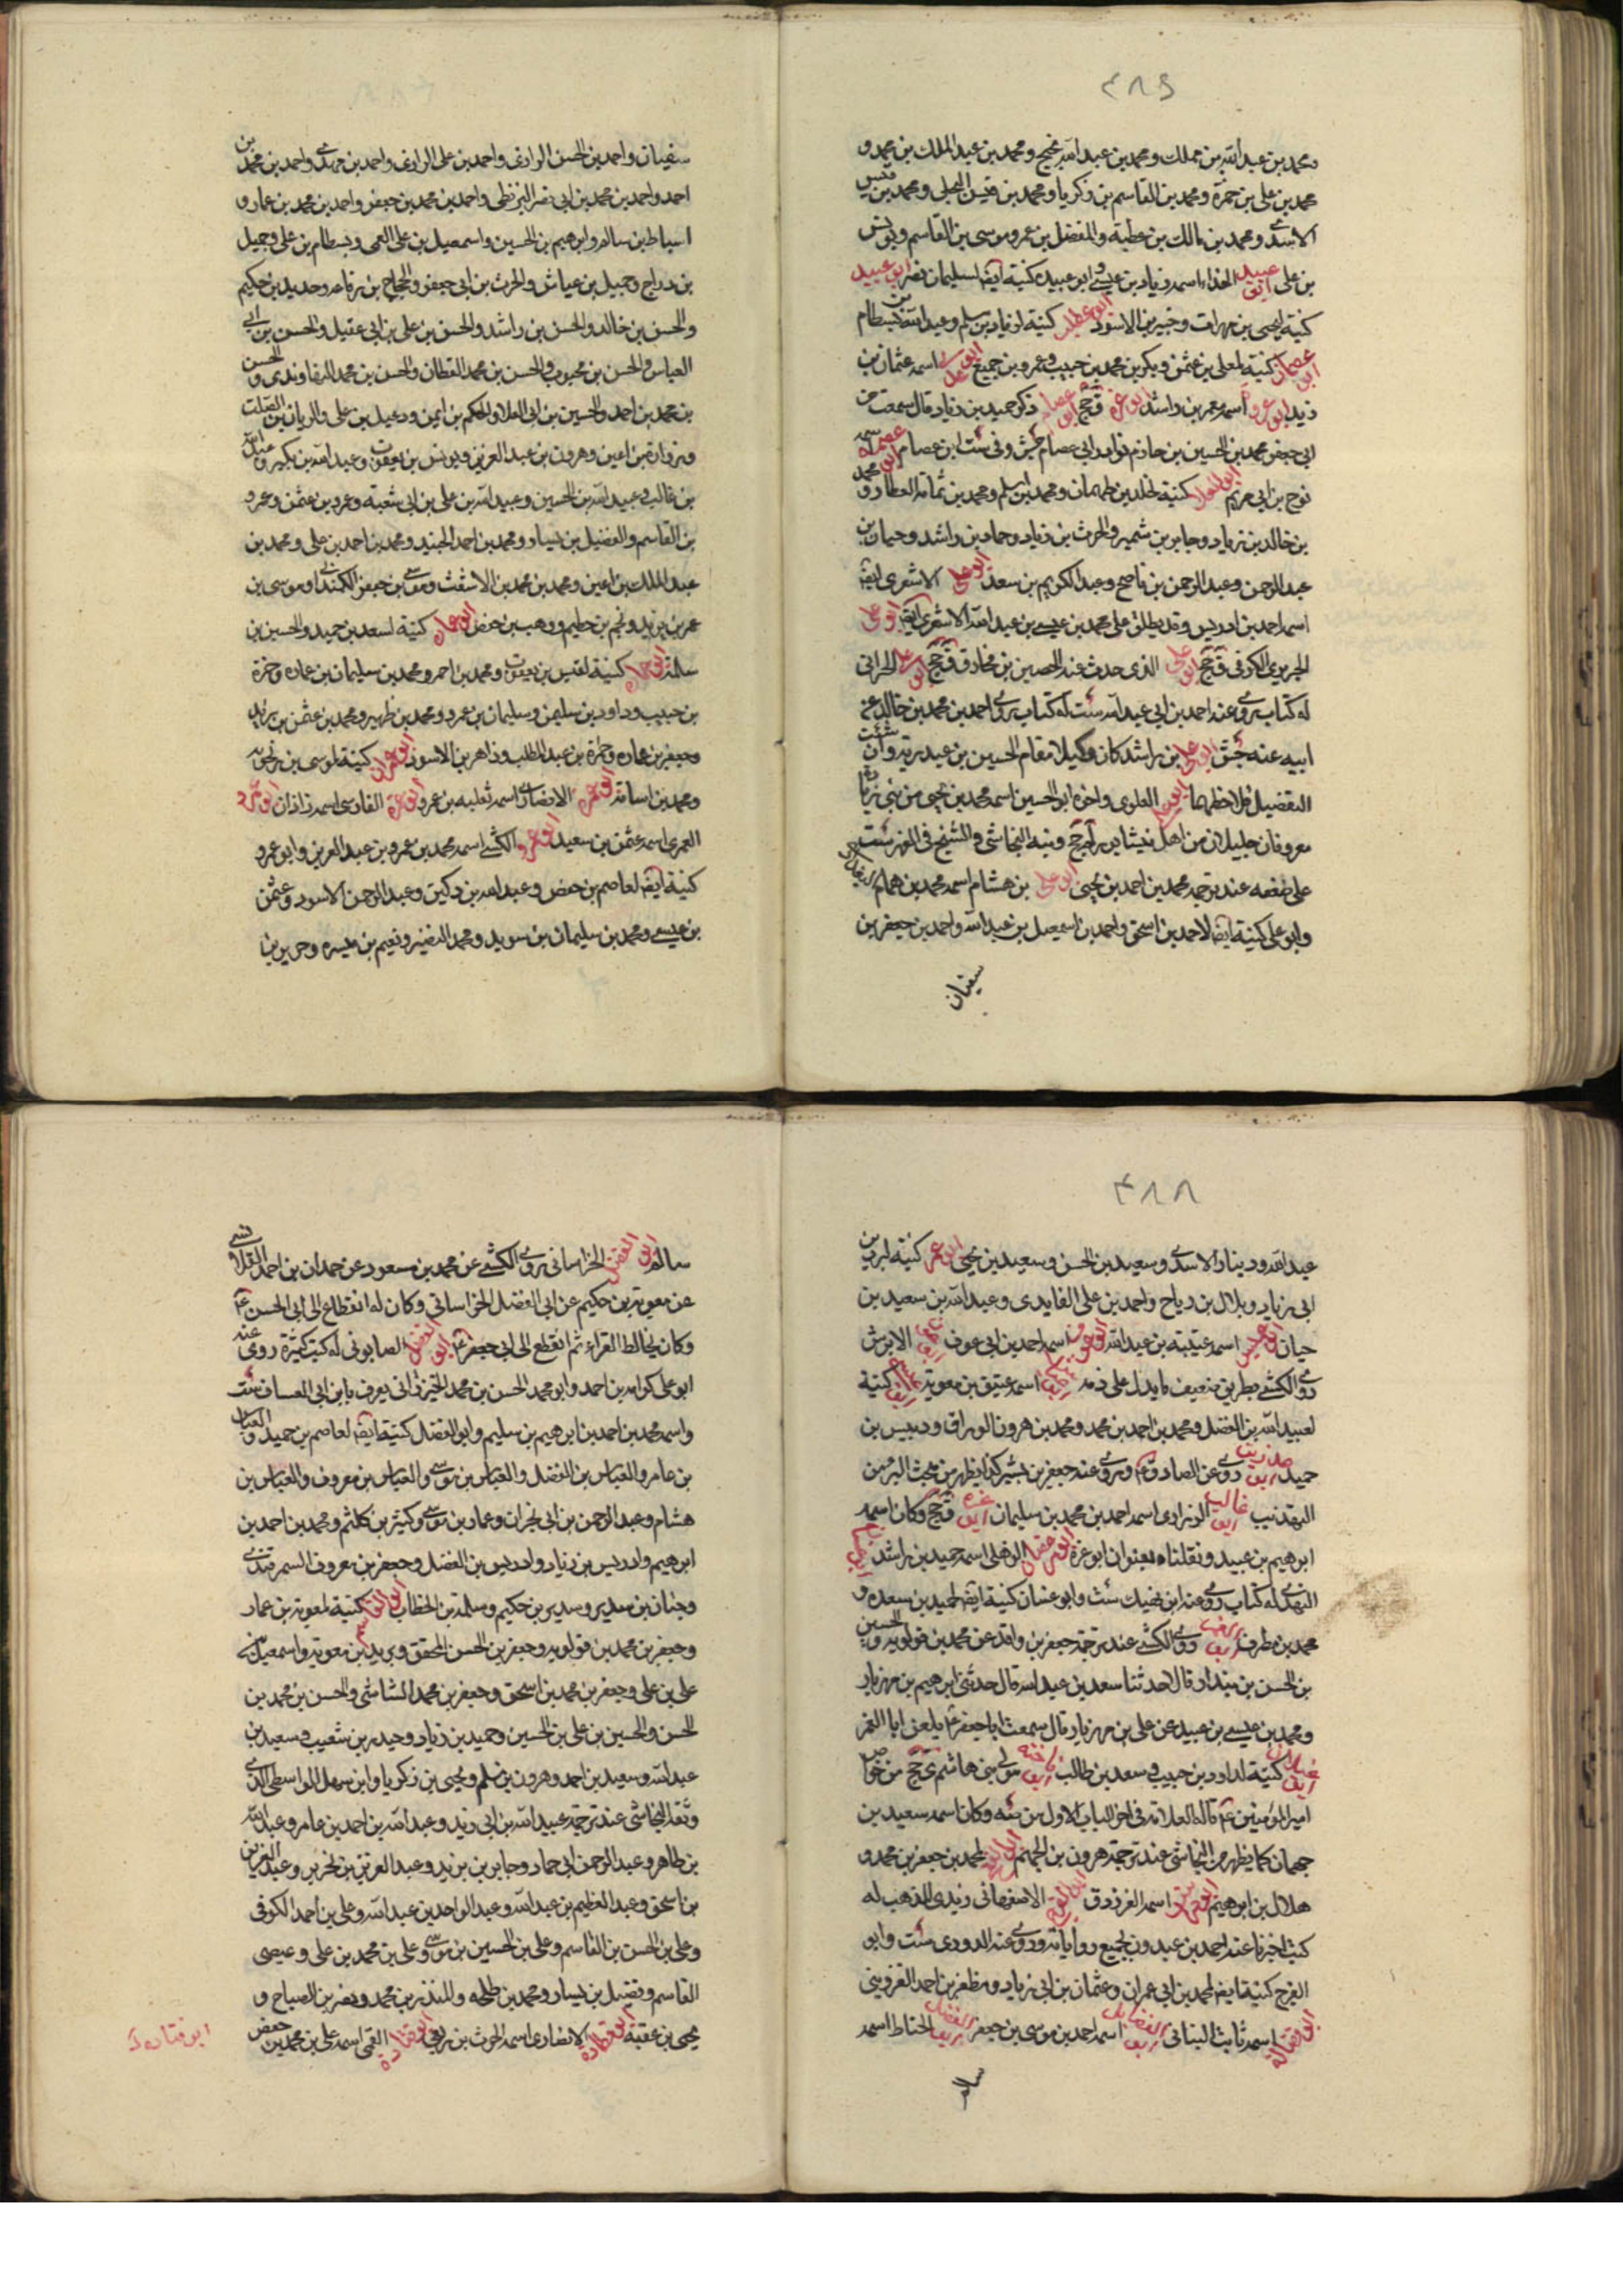 ٤٨٦
ومحمد بن عبد الله بن مملك ومحمد بن عبد الله بن نجيح ومحمد بن عبد الملك بن محمد و
محمد بن على بن حمزة ومحمد بن القاسم بن زكريا ومحمد بن قيس البجلى ومحمد بن قيس
الاسدى ومحمد بن مالك بن عطية والمفضل بن عمرو موسى بن القاسم ويونس
بن على ابو عبيدة الحذاء اسمه زياد بن عيسى وابو عبيدة كنية ايضا لسليمان بن نصر ابو عبيد
كنية يحيى بن مهران وخيبر بن الاسود كنية لزياد بن مسلم وعبد الله بن بسطام
كنية لمعلى بن عثمن وبكر بن محمد بن حبيب وعمرو بن جميع اسمه عثمان بن
زيد ابو عروة اسمه معمر بن راشد ابو عزة قح ابو عصام ذكر حميد بن زياد قال سمعت من
ابى جعفر محمد بن الحسين بن حازم نوادر ابى عصام جش وفى ست ابن عصام ابو عصمة اسمه
نوح بن ابى مريم ابو العلا كنية لخالد بن طهمان ومحمد بن اسلم ومحمد بن تمامة العطار و محمد
بن خالد بن زياد وجابر بن شمير والحرث بن زياد وحماد بن راشد وحيان بن
عبد الرحمن وعبد الرحمن بن ناصح وعبد الكريم بن سعد ابو على الاشعرى ايضا
اسمه احمد بن ادريس وقد يطلق على محمد بن عيسى بن عبد الله الاشعرى ايضا ابو على
الجريرى الكوفى قح ابو على الذى حدث عنه الحصين بن مخارق قح ابو على الحرانى
له كتاب روى عنه احمد بن ابى عبد الله ست له كتاب روى احمد بن محمد بن خالد عن
ابيه عنه جش ابو على بن راشد كان وكيلا مقام الحسين بن عبد ربه وان شئت
التفضيل فلاحظهما ابو على العلوى واخوه ابو الحسين اسمه محمد بن يحيى من بنى زيارة
معروفان جليلان من اهل نيشابور لم جخ ونبه النجاشى والشيخ فى الفهرست
على ضعفه عند ترجمة محمد بن احمد بن يحيى ابو على بن هشام اسمه محمد بن همام
وابو على كنية ايضا لاحمد بن اسحق واحمد بن اسمعيل بن عبد الله واحمد بن جعفر بن
سفيان
سفيان واحمد بن الحسن الرازى واحمد بن على الرازى واحمد بن مهدى واحمد بن محمد بن
احمد واحمد بن محمد بن ابى نصر البزنطى واحمد بن محمد بن جعفر واحمد بن محمد بن عمار و
اسباط بن سالم وابرهيم بن الحسين واسمعيل بن على العمى وبسطام بن على وجميل
بن دراج وجميل بن عياش والحرث بن ابى جعفر والحجاج بن رفاعه وحديد بن حكيم
والحسن بن خالد والحسن بن راشد والحسن بن على بن ابى عقيل والحسن بن ابى
العباس والحسن بن محبوب والحسن بن محمد القطان والحسن بن محمد النهاوندى والحسن
بن محمد بن احمد والحسين بن ابى العلا والحكم بن ايمن ودعبل بن على والريان بن الصلت
وزرارة بن اعين وهرون بن عبد العزيز ويونس بن يعقوب وعبد الله بن بكير و عبد الله
بن غالب وعبيد الله بن الحسين وعبيد الله بن على بن ابى شعبه وعمرو بن عثمن وعمرو
بن القاسم والفضيل بن يسار ومحمد بن احمد الجنيد ومحمد بن احمد بن على ومحمد بن
عبد الملك بن اعين ومحمد بن محمد بن الاشعث وموسى بن جعفر الكمندانى وموسى بن
عمر بن يزيد ونجم بن حطيم ووهب بن حفص ابو عمار كنية لسعد بن حميد والحسين بن
سالم ابو عمارة كنية لقيس بن يعقوب ومحمد بن احمر ومحمد بن سليمان بن عماره وحمزة
بن حبيب وداود بن سليمن وسليمان بن عمرو ومحمد بن ظهير ومحمد بن عثمن بن يزيد
وجعفر بن عماره وحمزة بن عبد المطلب وزاهر بن الاسود ابو عمران كنية لموسى بن رنجويه
ومحمد بن اسامة ابو عمرة الانصارى اسمه ثعلبه بن عمرو ابو عمرة الفارسى اسمه زاذان ابو عمرو
العمرى اسمه عثمن بن سعيد ابو عمرو الكشى اسمه محمد بن عمرو بن عبد العزيز وابو عمرو
كنية ايضا لعاصم بن حفص وعبد الله بن دكين وعبد الرحمن الاسود وعثمن
بن عيسى ومحمد بن سليمان بن سويد ومحمد النضير ونعيم بن ميسره وحريز بن
٤٨٨
عبد الله ودينار الاسدى وسعيد بن الحسن وسعيد بن يحيى ابو عمر كنية لبريد بن
ابى زياد وبلال بن رياح واحمد بن على الفايدى وعبد الله بن سعيد بن
حيان اسمه عتيبة بن عبد الله ابو عوف اسمه احمد بن ابى عوف الابرش
روى الكشى بطريق ضعيف ما يدل على ذمه اسمه عتيق بن معوية كنية
لعبيد الله بن الفضل ومحمد بن احمد بن محمد ومحمد بن هرون الوراق ودبيس بن
حميد روى عن الصادق وروى عنه جعفر بن بشير كذا يظهر من بحث البر من
التهذيب ابو غالب الزرارى اسمه احمد بن محمد بن سليمان ابو غرة قح وكان اسمه
ابرهيم بن عبيد ونقلناه بعنوان ابو عزة ابو غسان الذهلى اسمه حميد بن راشد
النهدى له كتاب روى عنه ابن نهيك ست وابو غسان كنية ايضا لحميد بن سعده و
محمد بن مطرف روى الكشى عند ترجمة جعفر بن واقد عن محمد بن قولويه والحسين
بن الحسن بن بندار قال حدثنا سعد بن عبد الله قال حدثنى ابرهيم بن مهزيار
ومحمد بن عيسى بن عبيد عن على بن مهزيار قال سمعت ابا جعفر يلعن ابا الغمر
ابو غيلان كنية لداود بن حبيب وسعد بن طالب ابو فاخته مولى بنى هاشم ى جخ من خواص
امير المؤمنين ع قاله العلامة فى اخر الباب الاول من صه وكان اسمه سعيد بن
جهمان كما يظهر من النجاشى عند ترجمة هرون بن الجهم لمحمد بن جعفر بن محمد و
هلال بن ابرهيم ابو فراس اسمه الفرزدق ابو الفرج الاصفهانى زيدى المذهب له
كتب اخبرنا عنه احمد بن عبدون بجميع رواياته وروى عنه الدورى ست وابو
الفرج كنية ايضا لمحمد بن ابى عمران وعثمان بن ابى زياد ومظفر بن احمد القزوينى
ابو فضالة اسمه ثابت البنانى ابو الفضايل اسمه احمد بن موسى بن جعفر ابو الفضل الحناط اسمه
سالم
سالم ابو الفضل الخراسانى روى الكشى عن محمد بن مسعود عن حمدان بن احمد القلانسى
عن معوية بن حكيم عن ابى الفضل الخراسانى وكان له انقطاع الى ابى الحسن ع
وكان يخالط القراء ثم انقطع الى ابى جعفر ع ابو الفضل الصابونى له كتب كثيرة روى عنه
ابو على كرامه بن احمد وابو محمد الحسن بن محمد الخيزرانى يعرف بابن ابى العساف ست
واسمه محمد بن احمد بن ابرهيم بن سليم وابو الفضل كنية ايضا لعاصم بن حميد والعباس
بن عامر والعباس بن الفضل والعباس بن موسى والعباس بن معروف والعباس بن
هشام وعبد الرحمن بن ابى نجران وعمار بن موسى وكثير بن كلثم ومحمد بن احمد بن
ابرهيم وادريس بن زياد وادريس بن الفضل وجعفر بن معروف السمرقندى
وحنان بن سدير وسدير بن حكيم وسلمة بن الخطاب ابو القاسم كنية لمعوية بن عمار
وجعفر بن محمد بن قولويه وجعفر بن الحسن المحقق وبريد بن معوية واسمعيل بن
على بن على وجعفر بن محمد بن اسحق وجعفر بن محمد الشاشى والحسن بن محمد بن
الحسن والحسين بن على بن الحسين وحميد بن زياد وحيدر بن شعيب وسعيد بن
عبد الله وسعيد بن احمد وهرون بن مسلم ويحيى بن زكريا وابن سهل الواسطى الذى
وثقه النجاشى عند ترجمة عبيد الله بن ابى زيد وعبد الله بن احمد بن عامر وعبد الله
بن طاهر وعبد الرحمن ابى حماد وجابر بن يزيد وعبد العزيز بن نحرير وعبد العزيز
بن اسحق وعبد العظيم بن عبد الله وعبد الواحد بن عبد الله وعلى بن احمد الكوفى
وعلى بن الحسن بن القاسم وعلى بن الحسين بن موسى وعلى بن محمد بن على وعيصى
القاسم وفضيل بن يسار ومحمد بن طلحه والمنذر بن محمد ونصر بن الصباح و
يحيى بن عقبة ابو قتادة الانصارى اسمه الحرث بن ربعى ابو قتادة القمى اسمه على بن محمد بن حفص
ابو قتاده